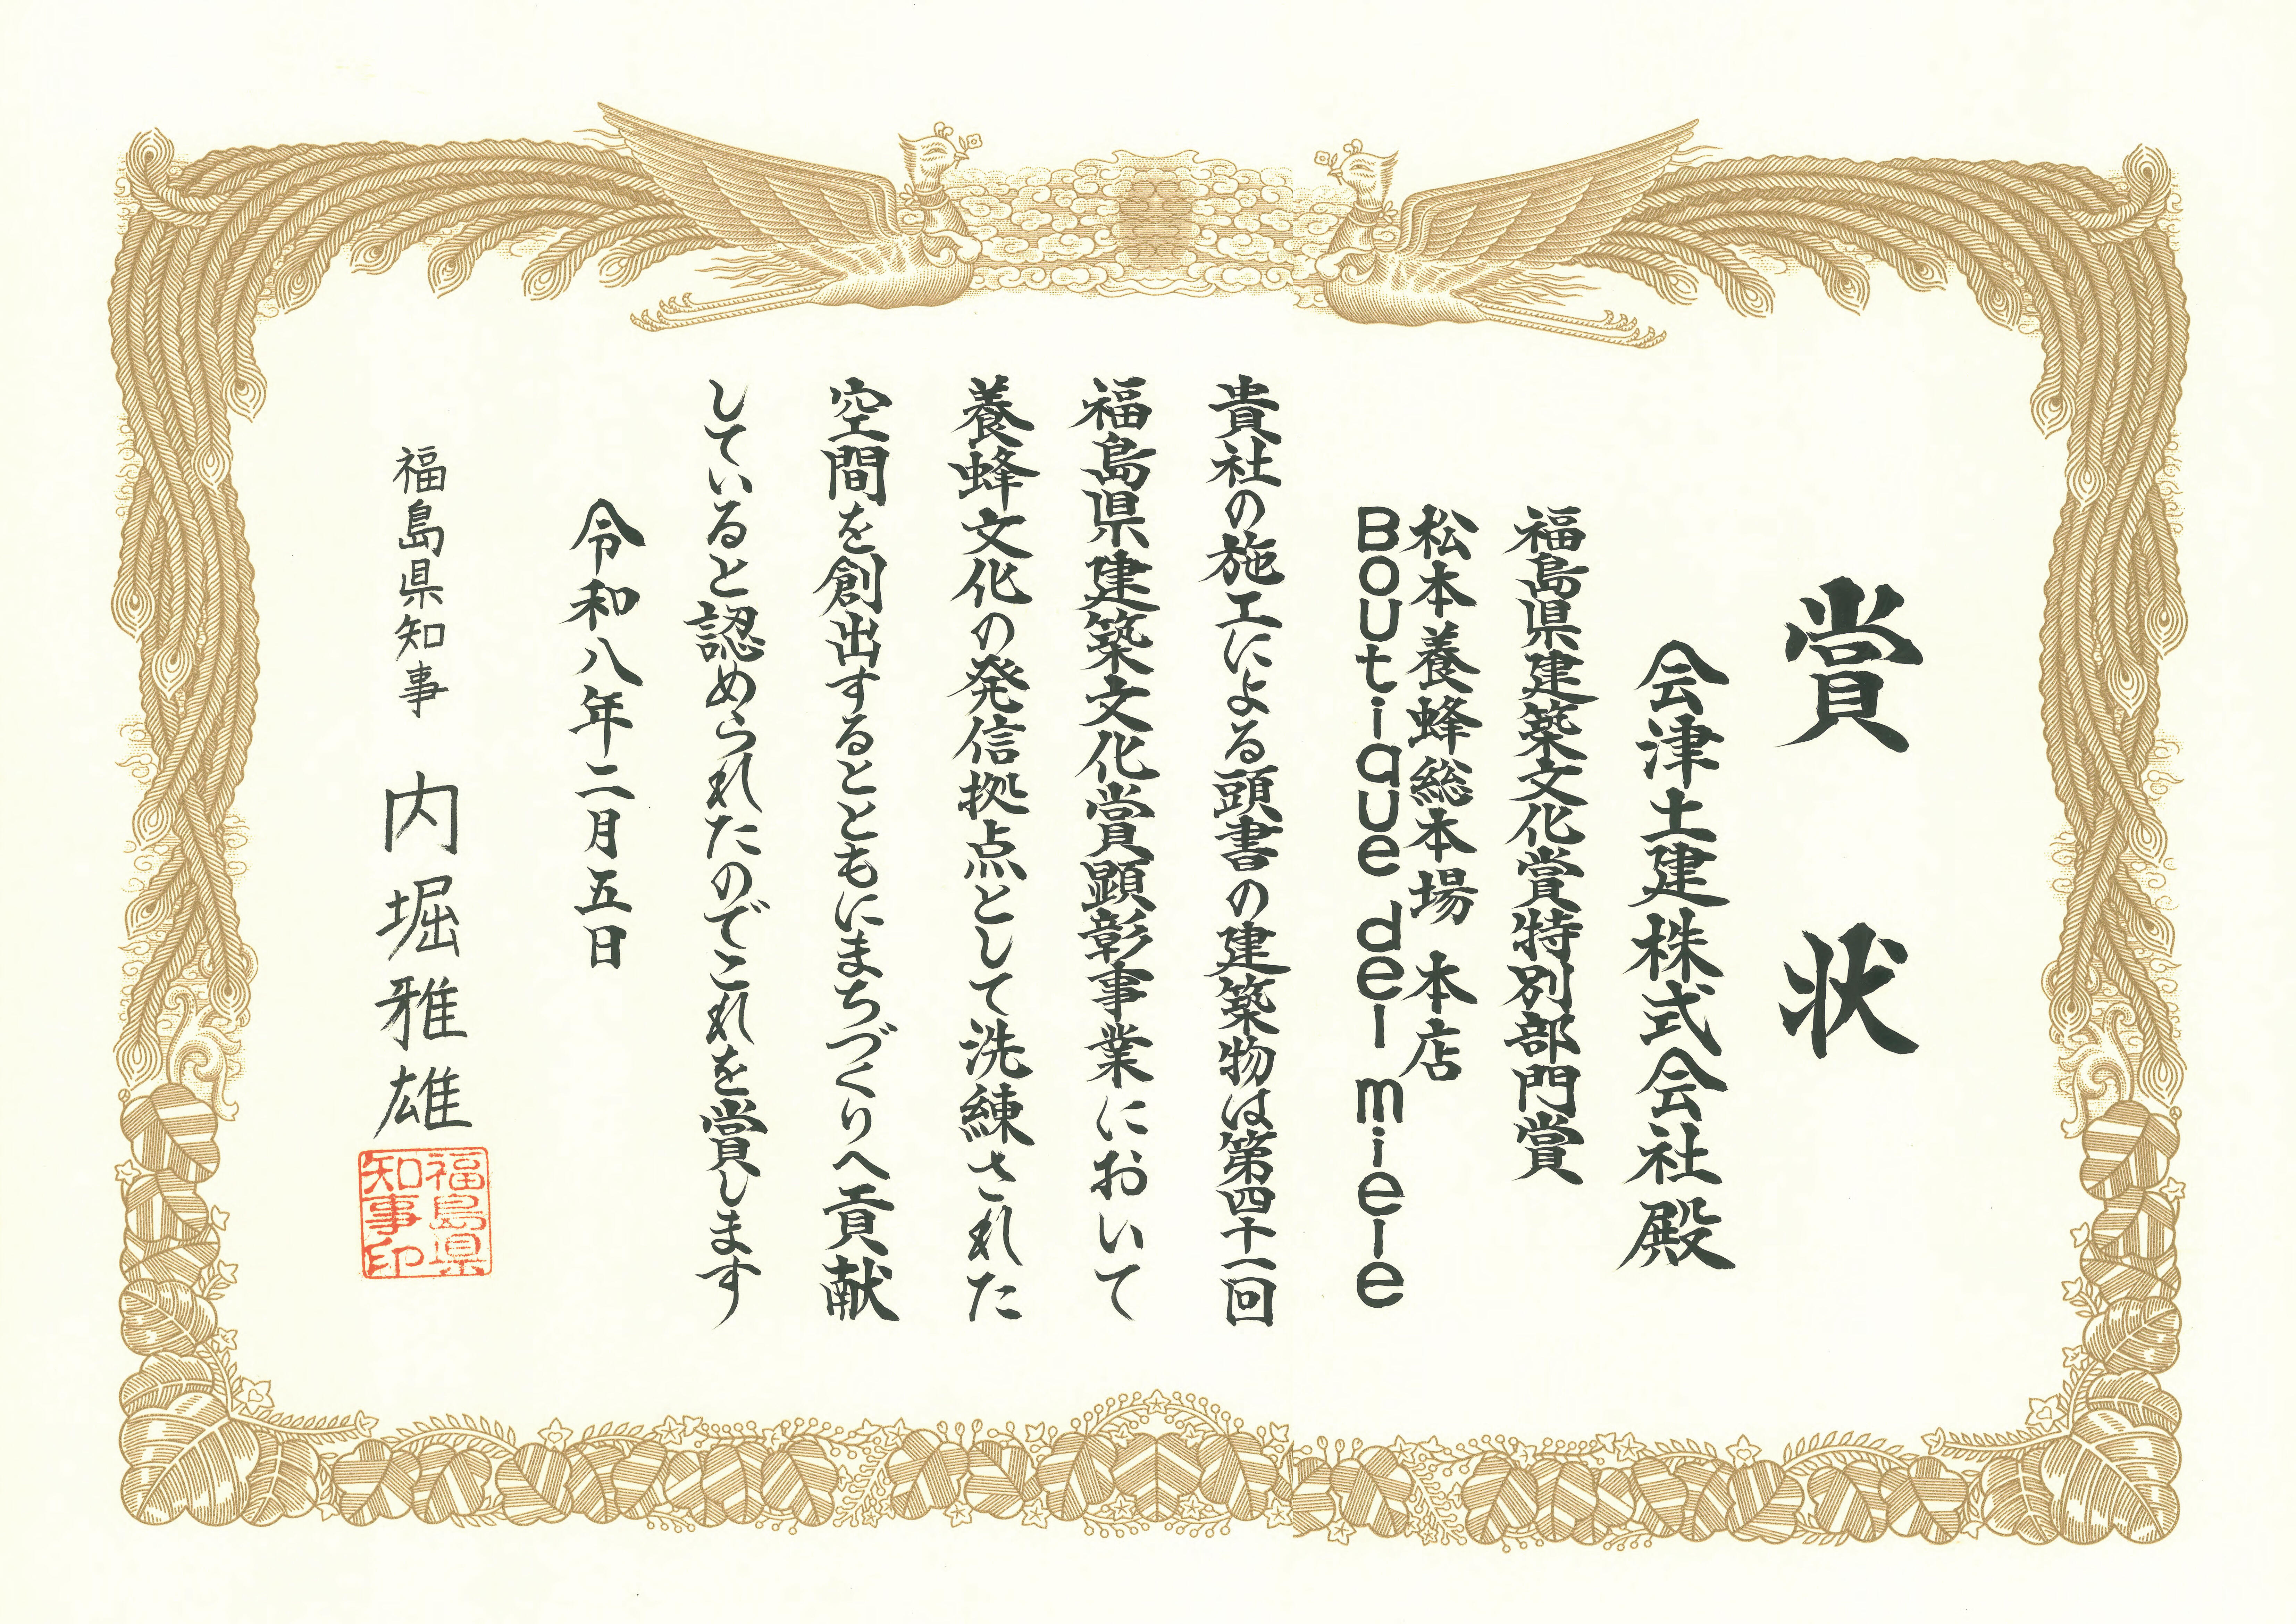 賞状
会津土建株式会社殿
福島県建築文化賞特別部門賞
松本養蜂総本場 本店
Boutique del miele
貴社の施工による頭書の建築物は第四十一回
福島県建築文化賞顕彰事業において
養蜂文化の発信拠点として洗練された
空間を創出するとともにまちづくりへ貢献
していると認められたのでこれを賞します
令和八年二月五日
福島県知事 内堀雅雄
福島県
知事印